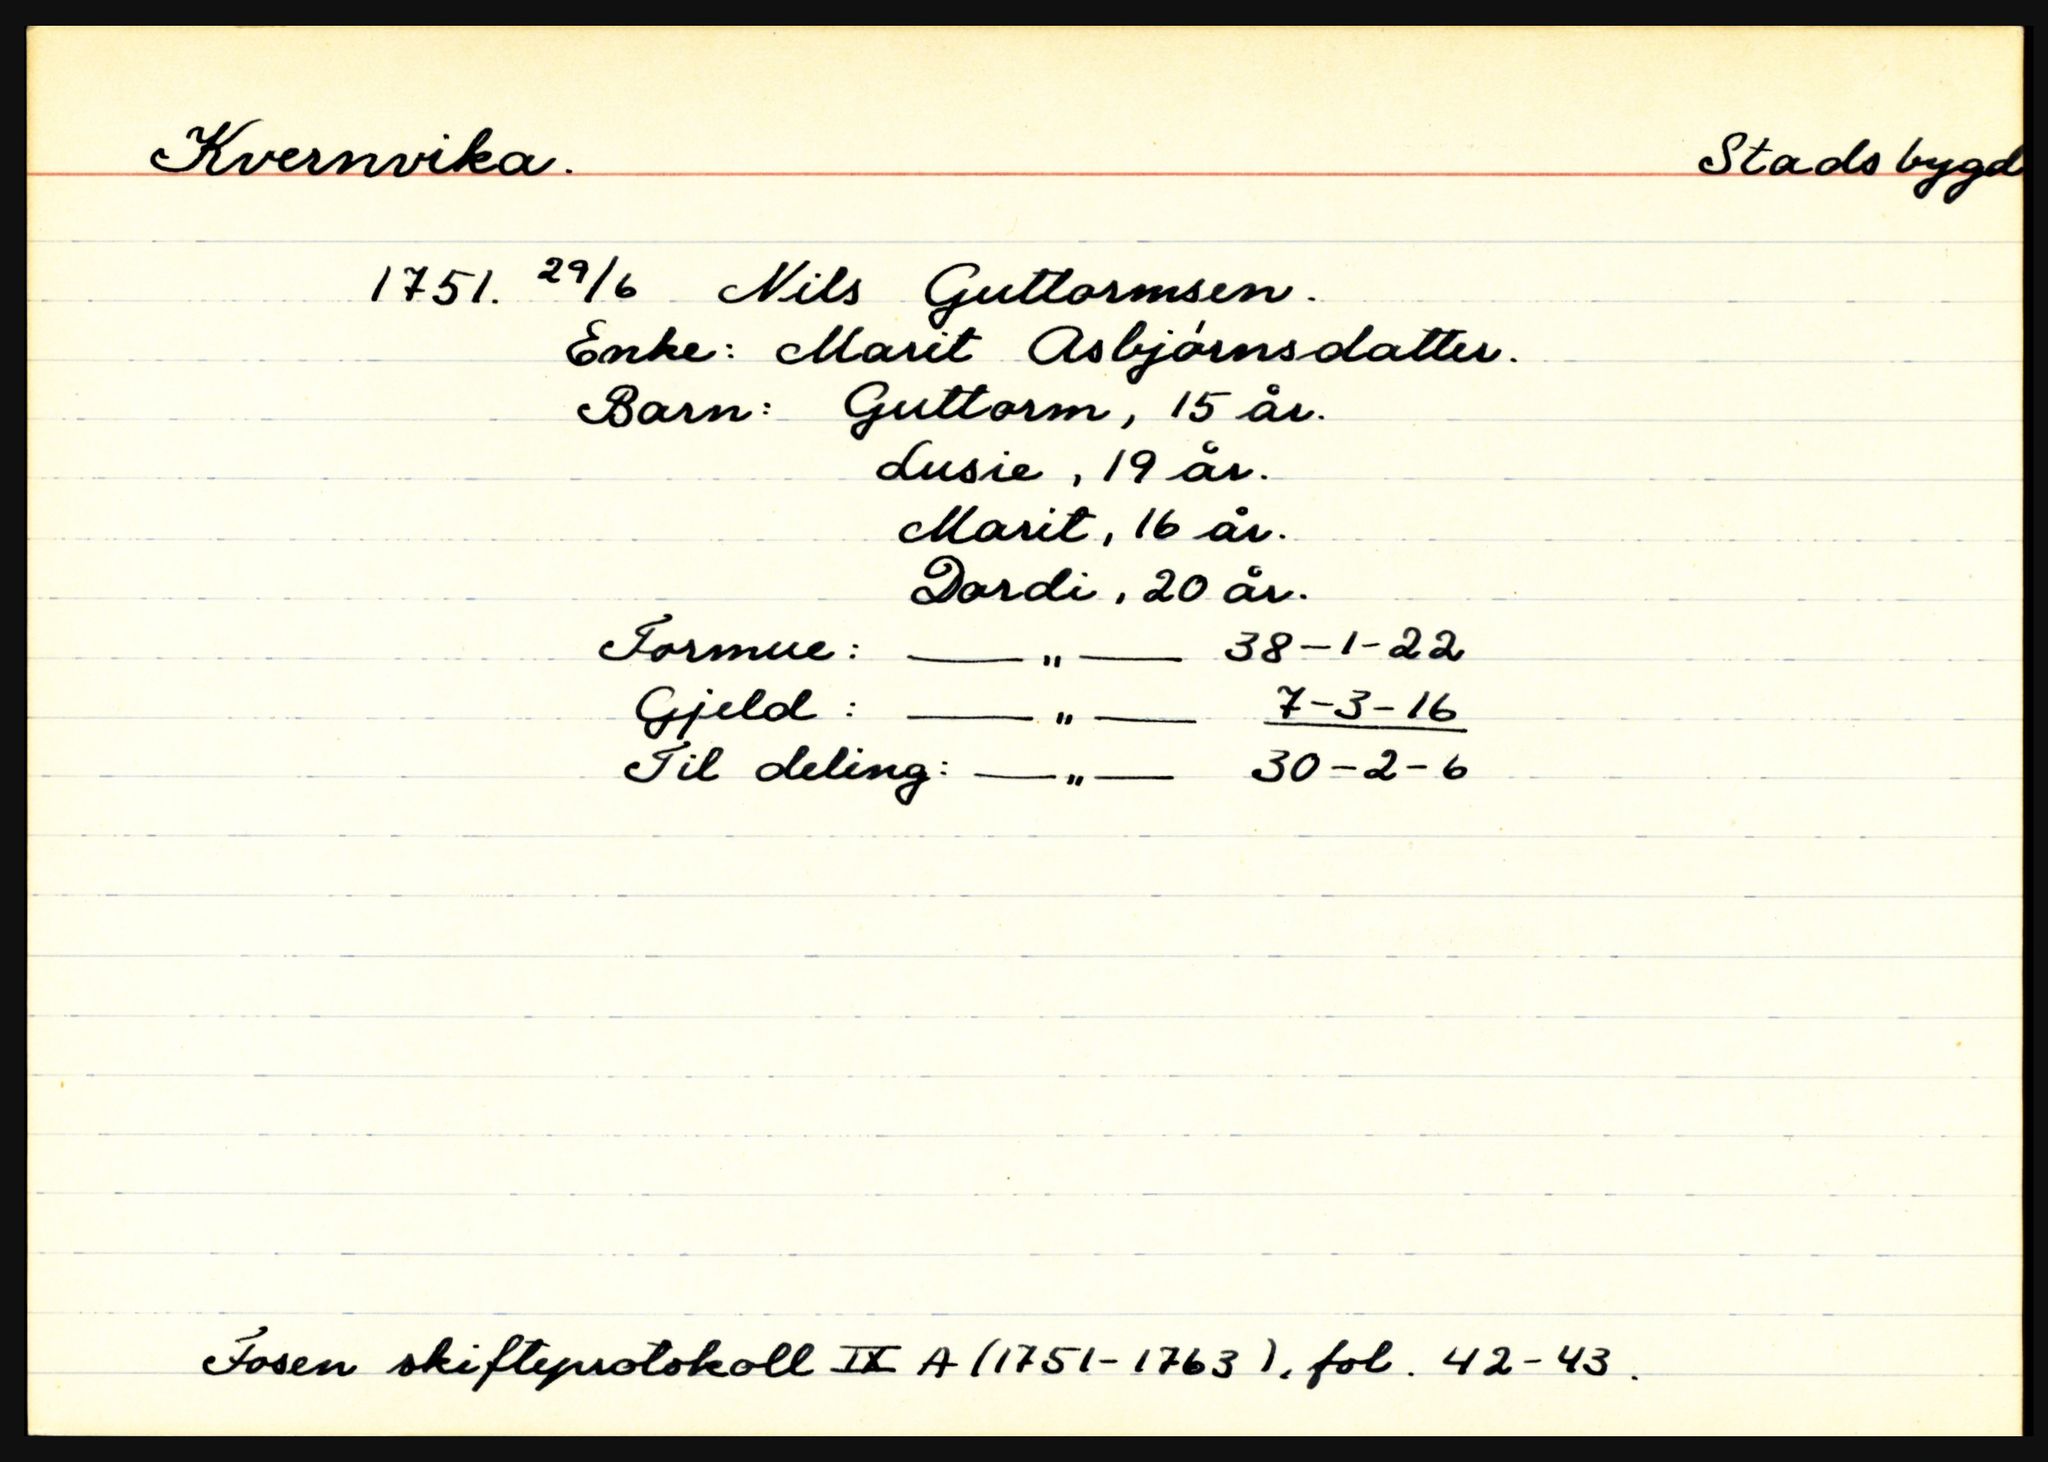 Kvernvika. Stadsbygd
1751. 29/6 Nils Guttormsen.
Enke: Marit Asbjórnsdatter.
Barn: Guttorm, 15 år.
Lusie, 19 år.
Marit, 16 år.
Dordi, 20 år.
Formue: —„— 38-1-22
Gjeld: —„— 7-3-16
Til deling: —„— 30-2-6
Fosen skifteprotokoll IX A (1751-1763), fol. 42-43.